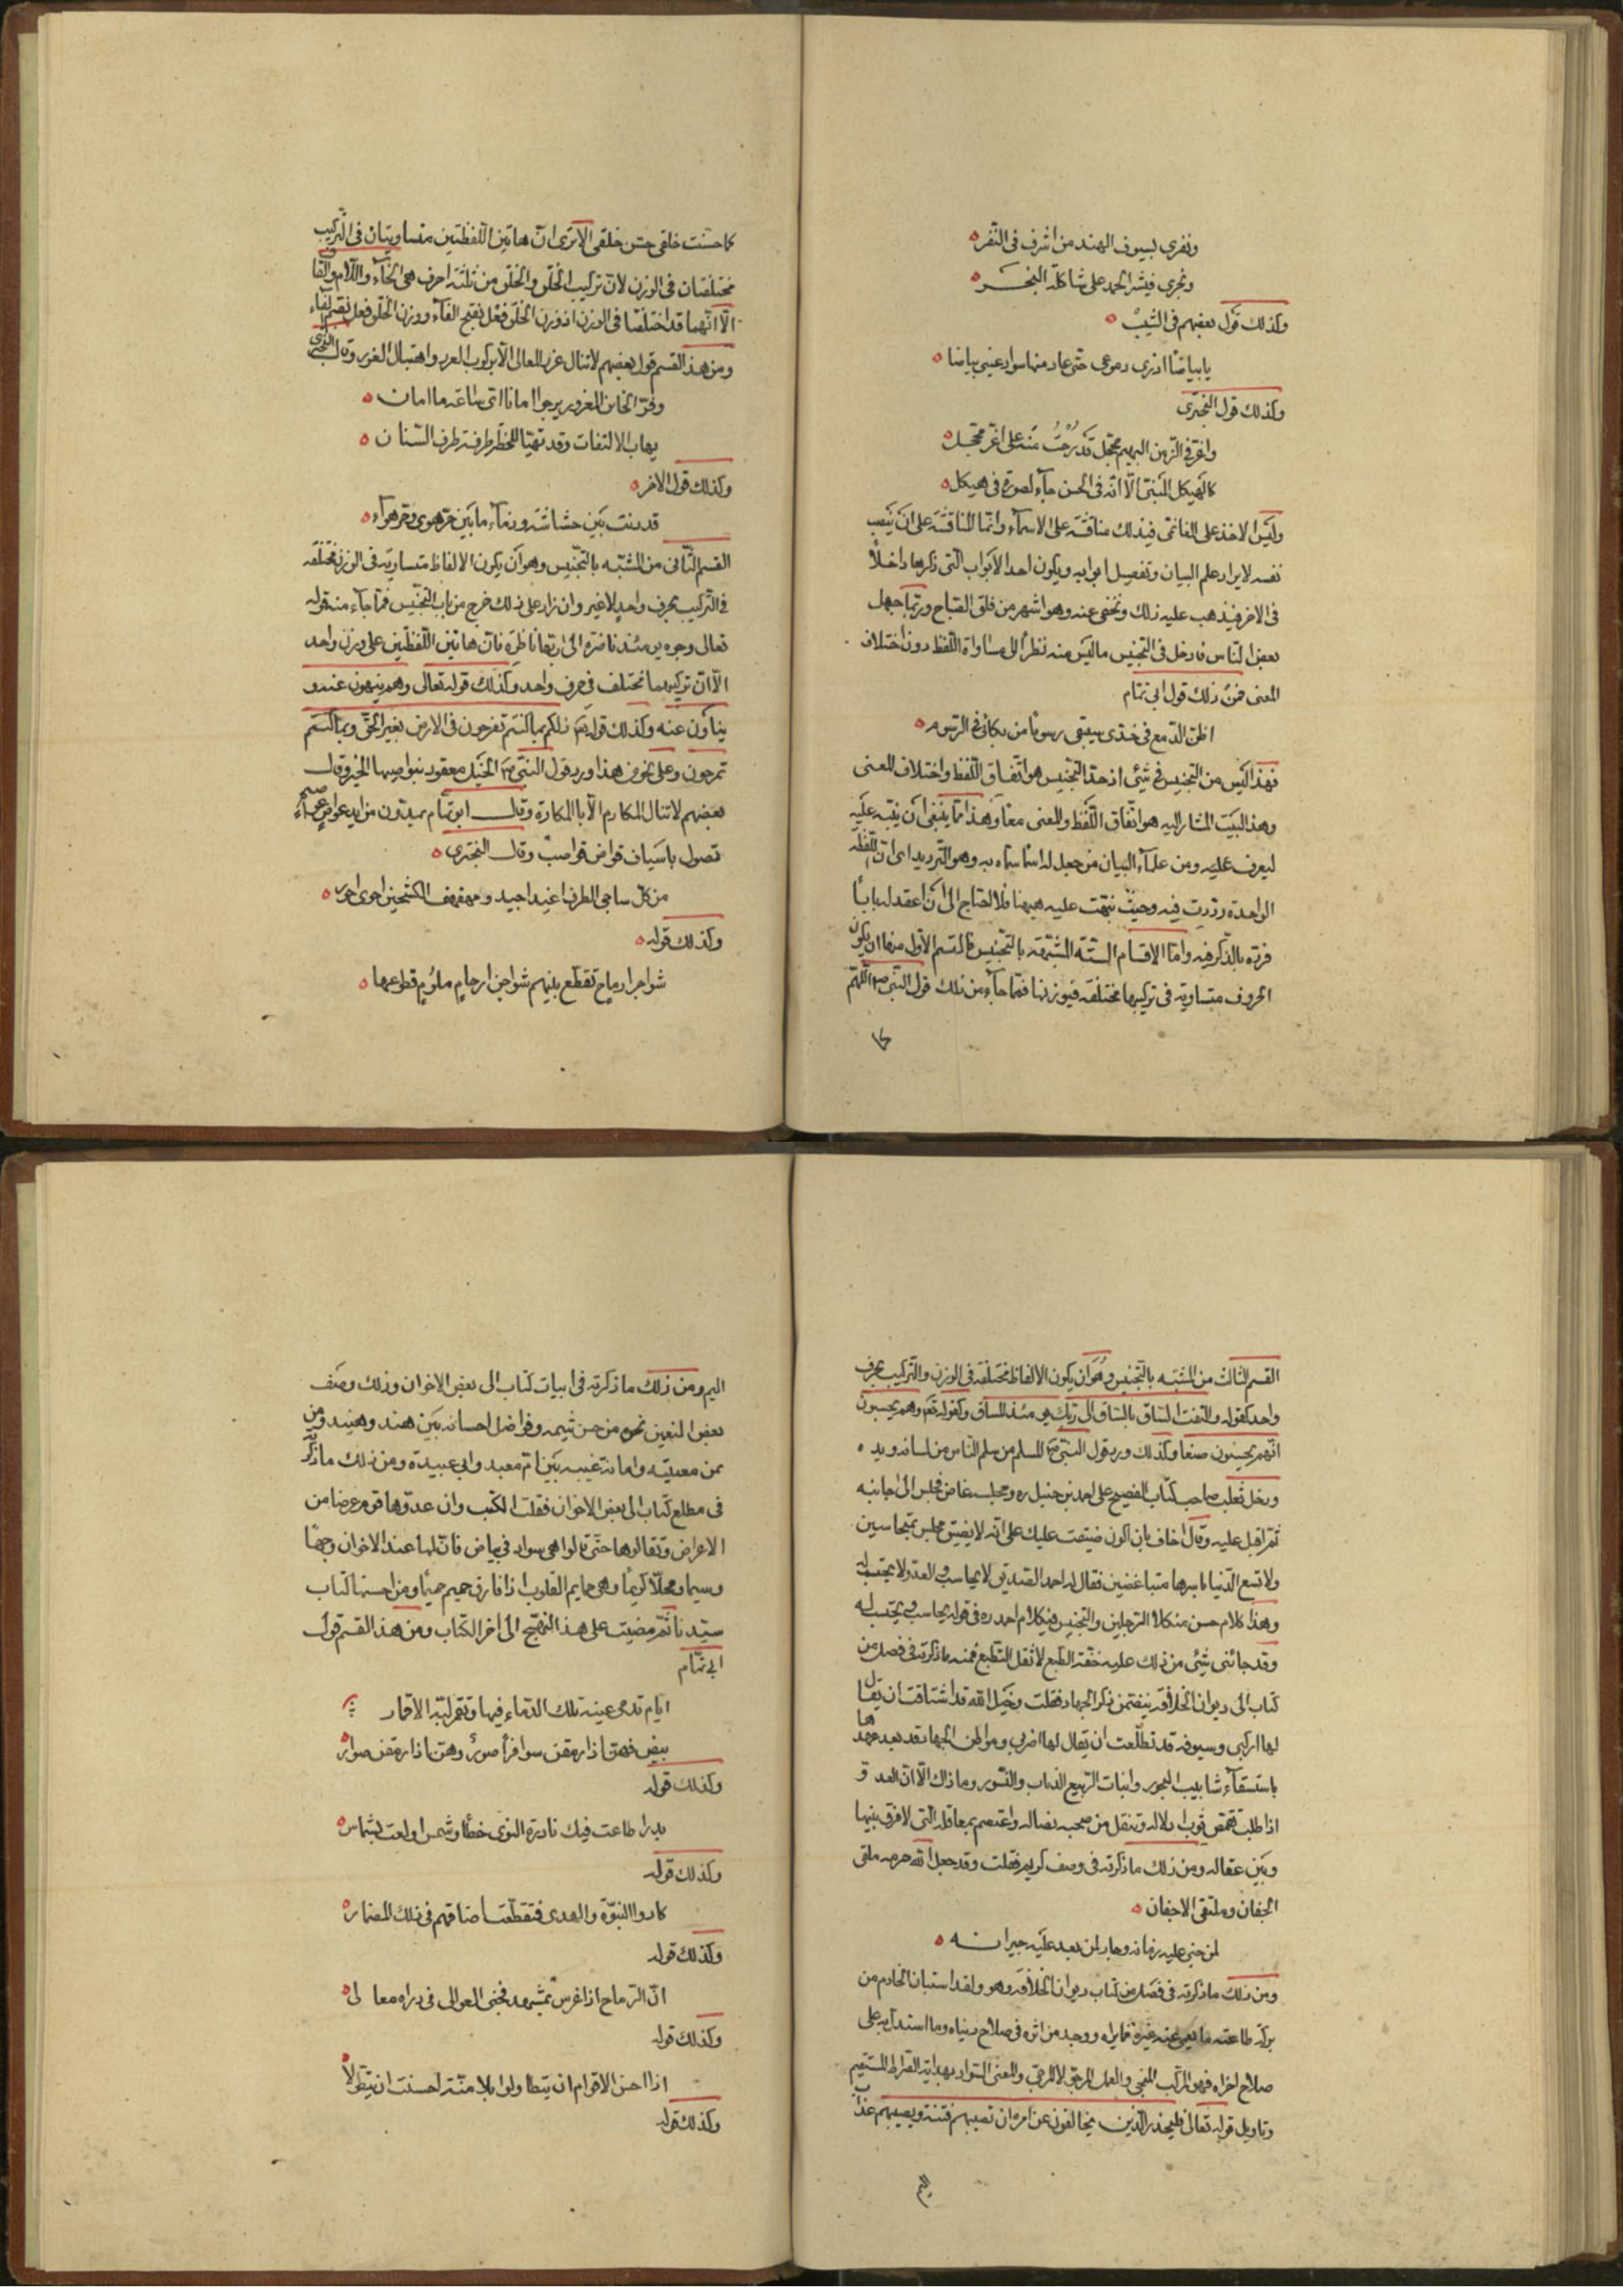 ونفرى بسيوف الهند من اشرف فى النفر
ونجرى فى شرا الحمد على شاكلة البحر
وكذلك قول بعضهم فى الشيب
يا بياضا اذرى دموعى حتى عاد منها سواد عينى بياضا
وكذلك قول البحترى
واغر فى الزمن البهيم محجل قد رحت منه على اغر محجل
كالهيكل المبنى الا انه فى الحسن جاء كصورة فى هيكل
وليس الاخذ على الغانمى فى ذلك مناقشة على الاسماء وانما المناقشة على ان ينصب
نفسه لايراد علم البيان وتفصيل ابوابه ويكون احد الابواب التى ذكرها داخلا
فى الاخر فيذهب عليه ذلك ويخفى عنه وهو اشهر من فلق الصباح وربما جهل
بعض الناس فادخل فى التجنيس ما ليس منه نظرا الى مساواة اللفظ دون اختلاف
المعنى فمن ذلك قول ابى تمام
اظن الدمع فى خدى سيبقى رسوما من بكائى فى الرسوم
فهذا ليس من التجنيس فى شئ اذ حد التجنيس هو اتفاق اللفظ واختلاف المعنى
وهذا البيت المشار اليه هو اتفاق اللفظ والمعنى معا وهذا مما ينبغى ان ينبه عليه
ليعرف عليه ومن علماء البيان من جعل له اسما سماه به وهو الترديد اى ان اللفظة
الواحدة رددت فيه وحيث نبهت عليه ههنا فلا احتاج الى ان اعقد له بابا
فرده بالذكر فيه واما الاقسام الستة المشبهة بالتجنيس فالقسم الاول منها ان يكون
الحروف متساوية فى تركيبها مختلفة فى وزنها فما جاء من ذلك قول النبى صم اللهم
كما
كما حسنت خلقى حسن خلقى الا ترى ان هاتين اللفظتين متساويتان فى التركيب
مختلفتان فى الوزن لان تركيب الخلق والخلق من ثلثة احرف هى الخاء واللام والقاف
الا انهما قد اختلفا فى الوزن اذ وزن الخلق فعل بفتح الفاء ووزن الخلق فعل بضم الفاء
ومن هذا القسم قول بعضهم لا تنال غرر المعالى الا بركوب الغرر واهتبال الغرر وقال البحترى
وفر الخائن المغرور يرجوا امانا اى ساعة ما امان
يهاب الالتفات وقد تهيا للحظة طرفه طرف السنان
وكذلك قول الاخر
قد ذبت بين حشاشة وذماء ما بين حر هوى وحر هواء
القسم الثانى من المشبه بالتجنيس وهو ان يكون الالفاظ متساوية فى الوزن مختلفة
فى التركيب بحرف واحد لا غير وان زاد على ذلك خرج من باب التجنيس فما جاء منه قوله
تعالى وجوه يومئذ ناضرة الى ربها ناظرة فان هاتين اللفظتين على وزن واحد
الا ان تركيبهما مختلف فى حرف واحد وكذلك قوله تعالى وهم ينهون عنه و
يناون عنه وكذلك قوله تعم ذلكم بما كنتم تفرحون فى الارض بغير الحق وبما كنتم
تمرحون وعلى نحو من هذا ورد قول النبى صم الخيل معقود بنواصيها الخير وقال
بعضهم لا تنال المكارم الا بالمكاره وقال ابو تمام يمدون من ايد عواص عواصم
تصول باسياف قواض قواضب وقال البحترى
من كل ساجى الطرف اغيد اجيد ومهفهف الكشحين احوى احور
وكذلك قوله
شواجر ارماح تقطع بينهم شواجن ارحام ملوم قطوعها
القسم الثالث من المشبه بالتجنيس وهو ان يكون الالفاظ مختلفة فى الوزن والتركيب بحرف
واحد كقوله والتفت الساق بالساق الى ربك يومئذ المساق وكقوله تعم وهم يحسبون
انهم يحسنون صنعا وكذلك ورد قول النبى صم المسلم من سلم الناس من لسانه ويده
ودخل ثعلب صاحب كتاب الفصيح على احمد بن حنبل ره ومجلسه غاص فجلس الى جانبه
ثم اقبل عليه وقال اخاف بان اكون ضيقت عليك على انه لا يضيق مجلس بمتحابين
ولا تسع الدنيا باسرها متباغضين فقال له احمد الصديق لا يحاسب والعدو لا يحتسب له
وهذا كلام حسن من كلا الرجلين والتجنيس فى كلام احمد ره فى قوله يحاسب ويحتسب له
وقد جائنى شئ من ذلك عليه خفة الطبع لا ثقل التطبع فمنه ما ذكرته فى فصل من
كتاب الى ديوان الخلافة يتضمن ذكر الجهاد فقلت وخيل الله قد اشتاقت ان يقال
لها اركبى وسيوفه قد تطلعت ان يقال لها اضربى ومواطن الجهاد قد بعد عهدها
باستسقاء شابيب النحور وانبات الربيع الذباب والنسور وما ذاك الا ان العدو
اذا طلب تقمص ثوب اذلاله وتنقل من صحبة نصاله واعتصم بمعاقله التى لا فرق بينها
وبين عقاله ومن ذلك ما ذكرته فى وصف كريم فقلت وقد جعل الله حرمه ملقى
الجفان وملتقى الاجفان
لمن جنى عليه زمانه وجار لمن بعد عليه جيرانه
ومن ذلك ما ذكرته فى فصل من كتاب ديوان الخلافة وهو ولقد استبان الخادم من
بركة طاعته ما يعمى عنه غيره فما يراه ووجد من اثره فى صلاح دنياه وما استدل به على
صلاح اخراه فهو المركب المنجى والعمل المرجو لا المرجى والمعنى المراد بهداية الصراط المستقيم
وتاويل قوله تعالى فليحذر الذين يخالفون عن امره ان تصيبهم فتنة ويصيبهم عذاب
اليم
اليم ومن ذلك ما ذكرته فى ابيات كتاب الى بعض الاخوان وذلك وصف
بعض المنعمين نحوه من حسن شيمه وفواضل احسانه بين هند وهنيد ومن
يمن معديته وامانة غيبه بين ام معبد وابى عبيدة ومن ذلك ما ذكرته
فى مطلع كتاب الى بعض الاخوان فقلت الكتب وان عدوها قوم عرضا من
الاعراض وتقالوها حتى قالوا هى سواد فى بياض فان لها عند الاخوان وجها
وسيما ومحلا كريما وهى حمايم القلوب اذا فارق حميم حميما ومن احسنها كتاب
سيدنا ثم مضيت على هذا النهج الى اخر الكتاب ومن هذا القسم قول
ابى تمام
ايام تدمى عينه تلك الدماء فيها وتقمر لبه الاقمار
بيض فهن اذا رمقن سوافرا صور وهن اذا رمقن صوار
وكذلك قوله
بدر اطاعت فيك نادرة النوى خطأ وشمس اولعت بشماس
وكذلك قوله
كادوا النبوة والهدى فتقطعت اعناقهم فى ذلك المضمار
وكذلك قوله
ان الرماح اذا غرسن بمشهد فجنى العوالى فى ذراه معالى
وكذلك قوله
اذا احسن الاقوام ان يتطاولوا بلا منة احسنت ان تتطولا
وكذلك قوله